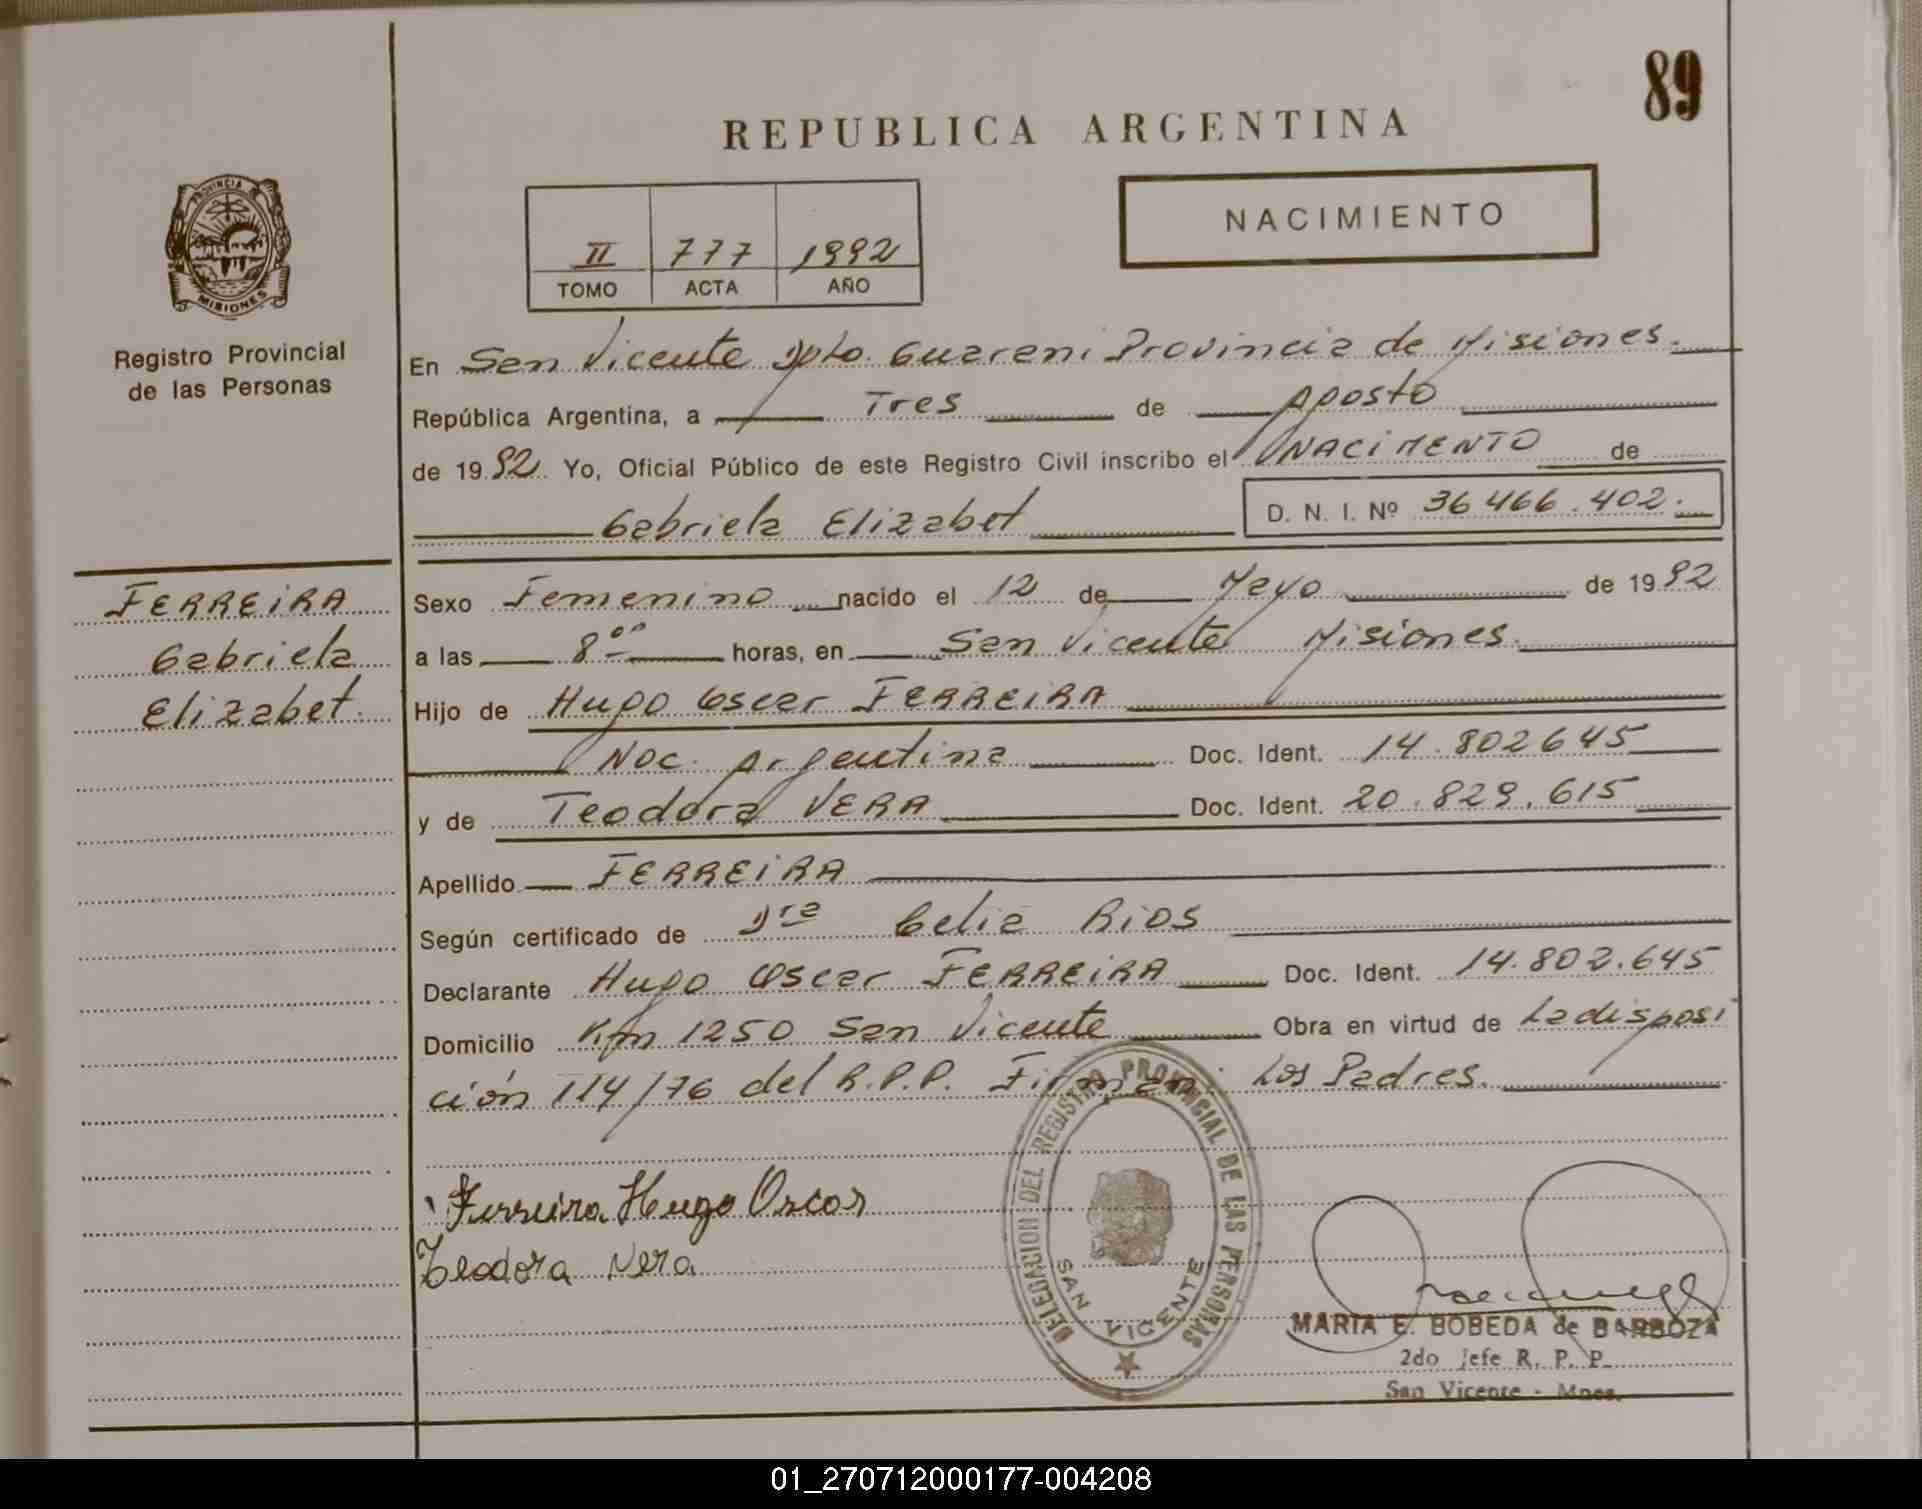 89
REPUBLICA ARGENTINA
NACIMIENTO
II 777 1992
TOMO ACTA AÑO
PROVINCIA DE
MISIONES
Registro Provincial
de las Personas
En San Vicente Dpto. Guarani Provincia de Misiones.
República Argentina, a Tres de Agosto
de 1992. Yo, Oficial Público de este Registro Civil inscribo el NACIMENTO de
Gabriela Elizabet D. N. I. Nº 36466.402.
FERREIRA
Gabriela
Elizabet.
Sexo Femenino nacido el 12 de Mayo de 1992
a las 8 00 horas, en San Vicente Misiones.
Hijo de Hugo Oscar FERREIRA
Nac. Argentina Doc. Ident. 14.802645
y de Teodora VERA Doc. Ident. 20.829.615
Apellido FERREIRA
Según certificado de Dra Celia Rios
Declarante Hugo Oscar FERREIRA Doc. Ident. 14.802.645
Domicilio Km 1250 San Vicente Obra en virtud de La disposi
ción 114/76 del R.P.P. Firman: Los Padres.
Ferreira Hugo Oscar
Teodora Vera
DELEGACION DEL REGISTRO PROVINCIAL DE LAS PERSONAS
SAN VICENTE
MARIA E. BOBEDA de BARBOZA
2do Jefe R. P. P.
San Vicente - Mnes.
01_270712000177-004208